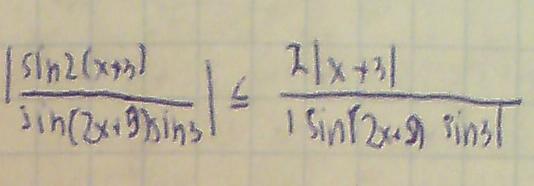 |sin2(x+3) / sin(2x+9)sin3| ≤ 2|x+3| / |sin(2x+9) sin3|